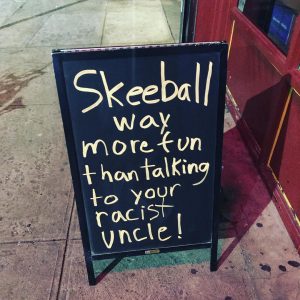 Skeeball
way
more fun
than talking
to your
racist
uncle!